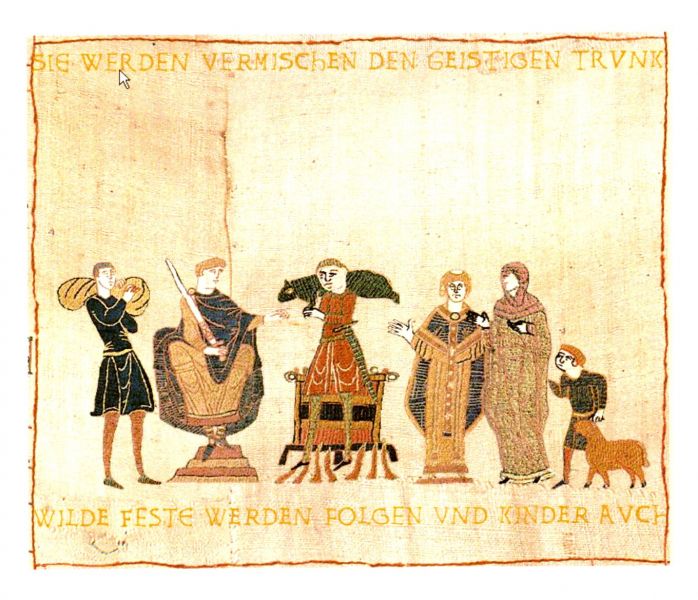 SIE WERDEN VERMISCHEN DEN GEISTIGEN TRVNK
WILDE FESTE WERDEN FOLGEN VND KINDER AVCH